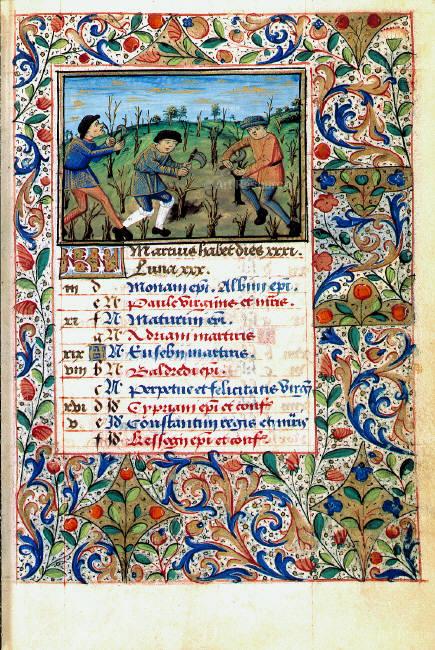 KL Martius habet dies xxxi.
Luna xxx.
iii d Monani epi. Albini epi.
e N Paule virginis et mris.
xi f N Maturini epi.
g N Adriani martiris
xix A N Eusebii martiris.
viii b N Baldredi epi.
c N Perpetue et felicitatis virgi
xvi d Id Cypriani epi et conf
v e Id Constantini regis et mris
f Id Kessogii epi et conf